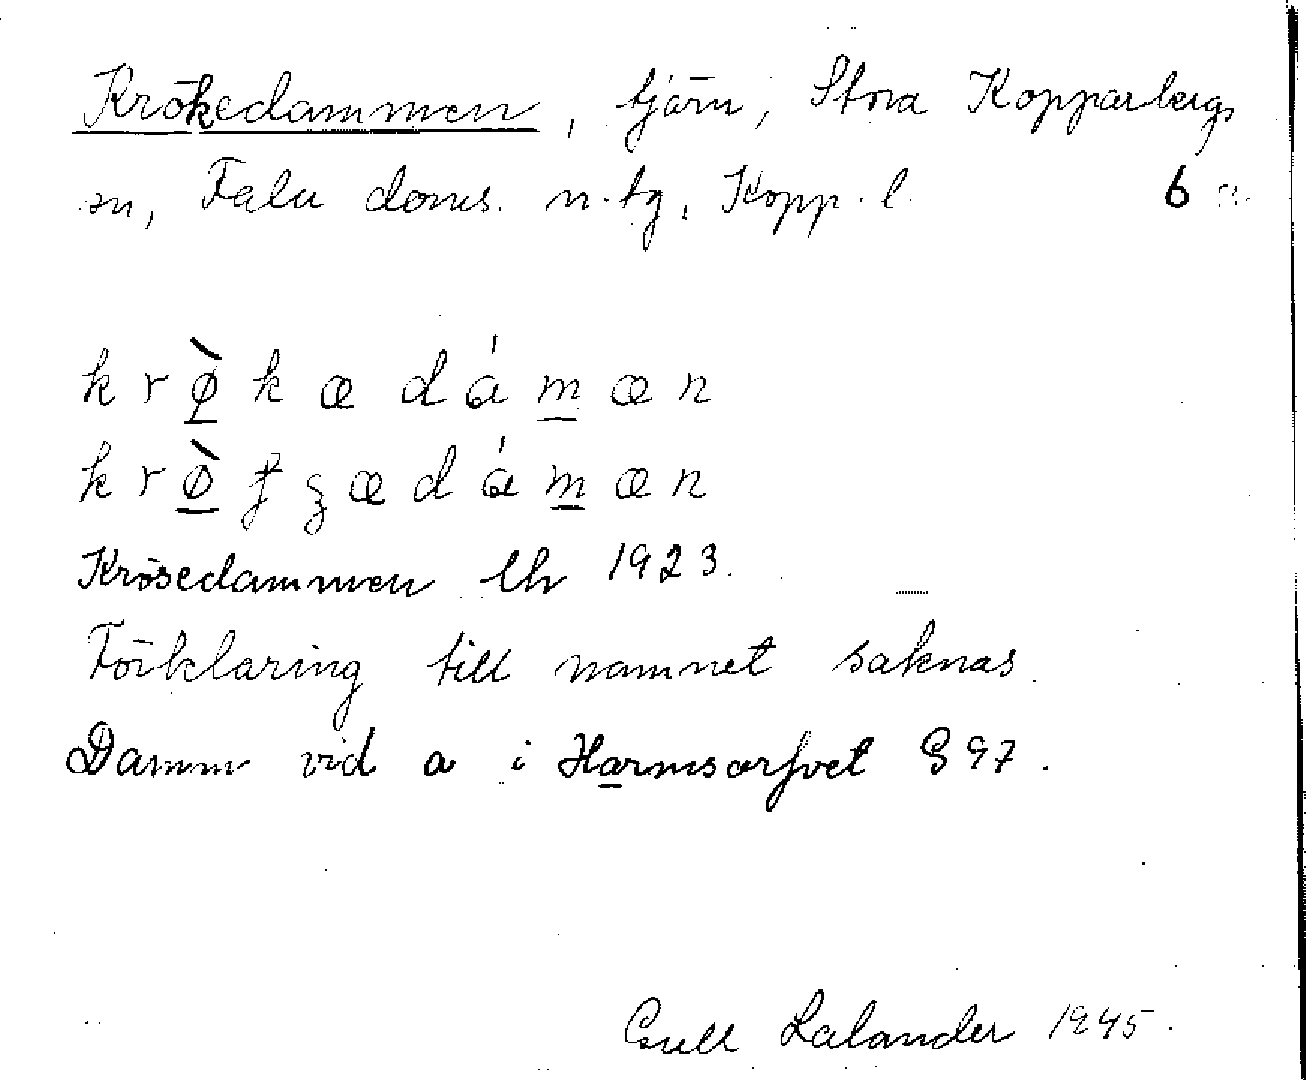 Krökedammen, tjärn, Stora Kopparbergs
sn, Falu doms. n. tg, Kopp. l. 6
k r ø̀ k æ d á m æ n
k r ø̀ æ d á m æ n
Krösedammen lh 1923.
Förklaring till namnet saknas.
Damm vid a i Harmsarfvet G 97.
Gull Lalander 1945.